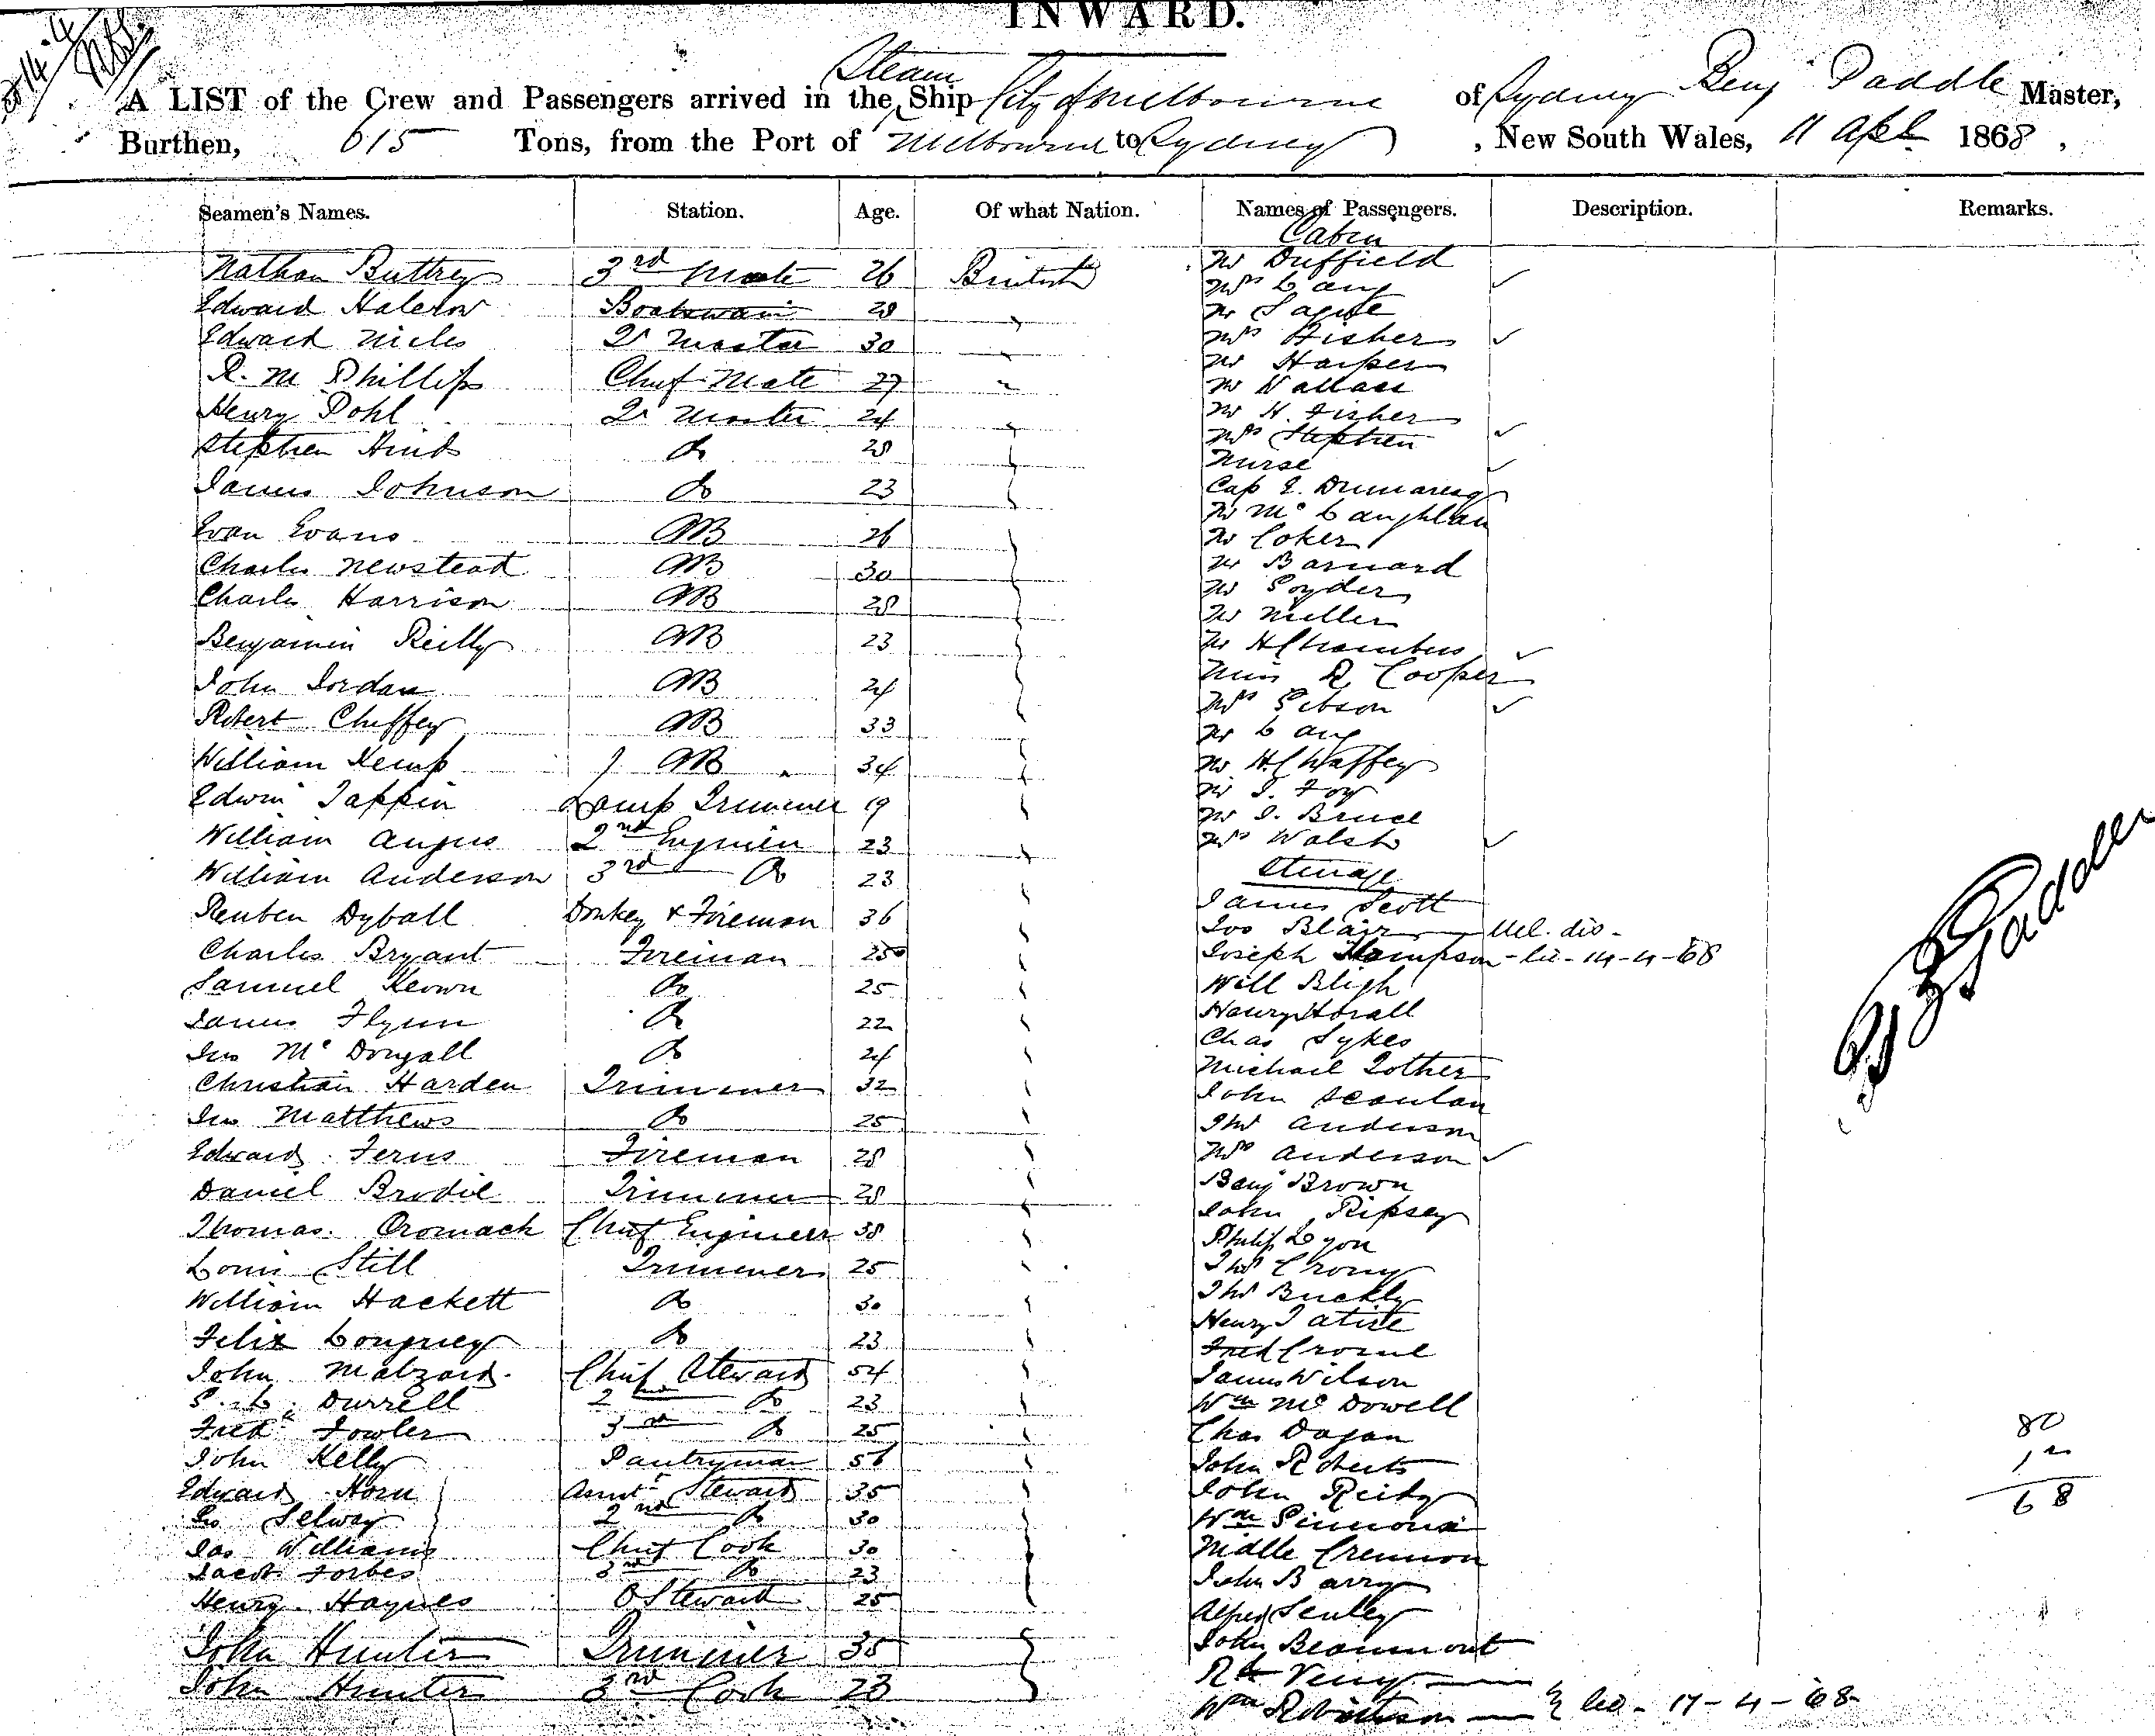 INWARD.
Steam
A LIST of the Crew and Passengers arrived in the Ship City of Melbourne of Sydney Benj Paddle Master,
Burthen, 615 Tons, from the Port of Melbourne to Sydney, New South Wales, 11 Apl 1868,
Seamen's Names. Station. Age. Of what Nation. Names of Passengers. Description. Remarks.
Cabin
Nathan Buttrey 3rd Mate 26 British
Edward Halcrow Boatswain 28
Edward Miles Qr Master 30
R. M Phillips Chief Mate 27
Henry Pohl Qr Master 24
Stephen Hind Do 28
James Johnson Do 23
Evan Evans AB 26
Charles Newstead AB 30
Charles Harrison AB 28
Benjamin Reilly AB 23
John Jordan AB 24
Robert Cheffey AB 33
William Kemp AB 34
Edwin Tappin Lamp Trimmer 19
William Angus 2nd Engineer 23
William Anderson 3rd Do 23
Reuben Dyball Donkey & Fireman 36
Charles Bryant Fireman 25
Samuel Keown Do 25
James Flynn Do 22
Jno McDougall Do 24
Christian Harden Trimmer 32
Jno Matthews Do 25
Edward Ferns Fireman 28
Daniel Brodie Trimmer 28
Thomas Cromack Chief Engineer 38
Louis Still Trimmer 25
William Hackett Do 30
Felix Do 23
John Malzard Chief Steward 54
Durrell 2 Do 23
Fred Fowler 3rd Do 25
John Kelly Pantryman 56
Edward Horn Steward 35
Selway 2nd Do 30
Jas Williams Chief Cook 30
Jacob Forbes Do 23
Henry Haynes Steward 25
John Hunter Trimmer 35
John Hunter 3rd Cook 23
Mr Duffield
Mrs Lang
Mr
Mrs Fisher
Mr Harper
Mr Wallace
Mr H. Fisher
Mrs Stephen
Nurse
Cap E. Dumaresq
Mr McLaughlan
Mr Coker
Mr Barnard
Mr Goyder
Mr Miller
Mr H Chambers
Miss R Cooper
Mrs Gibson
Mr Lang
Mr H Chaffey
Mr J. Foy
Mr J. Bruce
Mrs Walsh
Steerage
James Scott
Jos Blair
Joseph Thompson 14-4-68
Will Bligh
Henry Horall
Chas Sykes
Michael Lother
John Scanlan
Thos Anderson
Mrs Anderson
Benj Brown
John Ripsey
Philip Lyon
Thos
Thos Buckly
Henry
Fred
James Wilson
Wm McDowell
Chas Dagan
John Roberts
John Reidy
Wm Simmons
John Barry
Alfred
John Beaumont
Rt
Wm Robertson 17-4-68
B Paddle
80
12
68